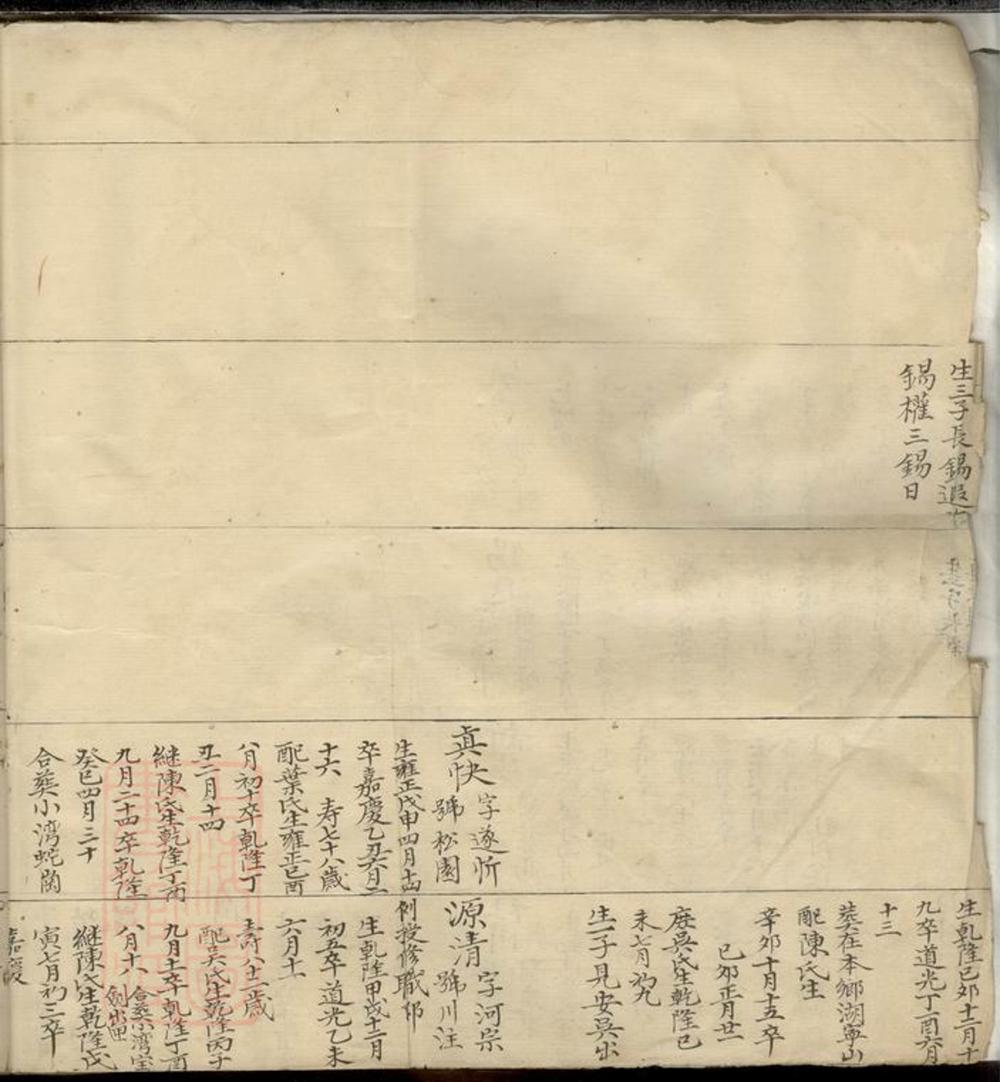 生三子長錫遐
錫權三錫日
真快
字遂忻
號松園
生雍正戊申四月十四
卒嘉慶乙丑六月二
十六 寿七十八歲
配葉氏生雍正己酉
八月初十卒乾隆丁
丑二月十四
継陳氏生乾隆丁丙
九月二十四卒乾隆
癸巳四月三十
合葬小湾蛇崗
生乾隆己卯十二月十
九卒道光丁酉六月
十三
葬在本鄉湖寧山
配陳氏生
辛卯十月十五卒
己卯正月廿一
庶吳氏生乾隆己
未七月初九
生一子見安吳出
源清
字河宗
號川注
例授修職郎
生乾隆甲戌十二月
初五卒道光乙未
六月十一
壽八十二歲
配吳氏生乾隆丙子
九月十二卒乾隆丁酉
八月十八
合葬小湾
継陳氏生乾隆戊
寅七月初三卒
嘉慶